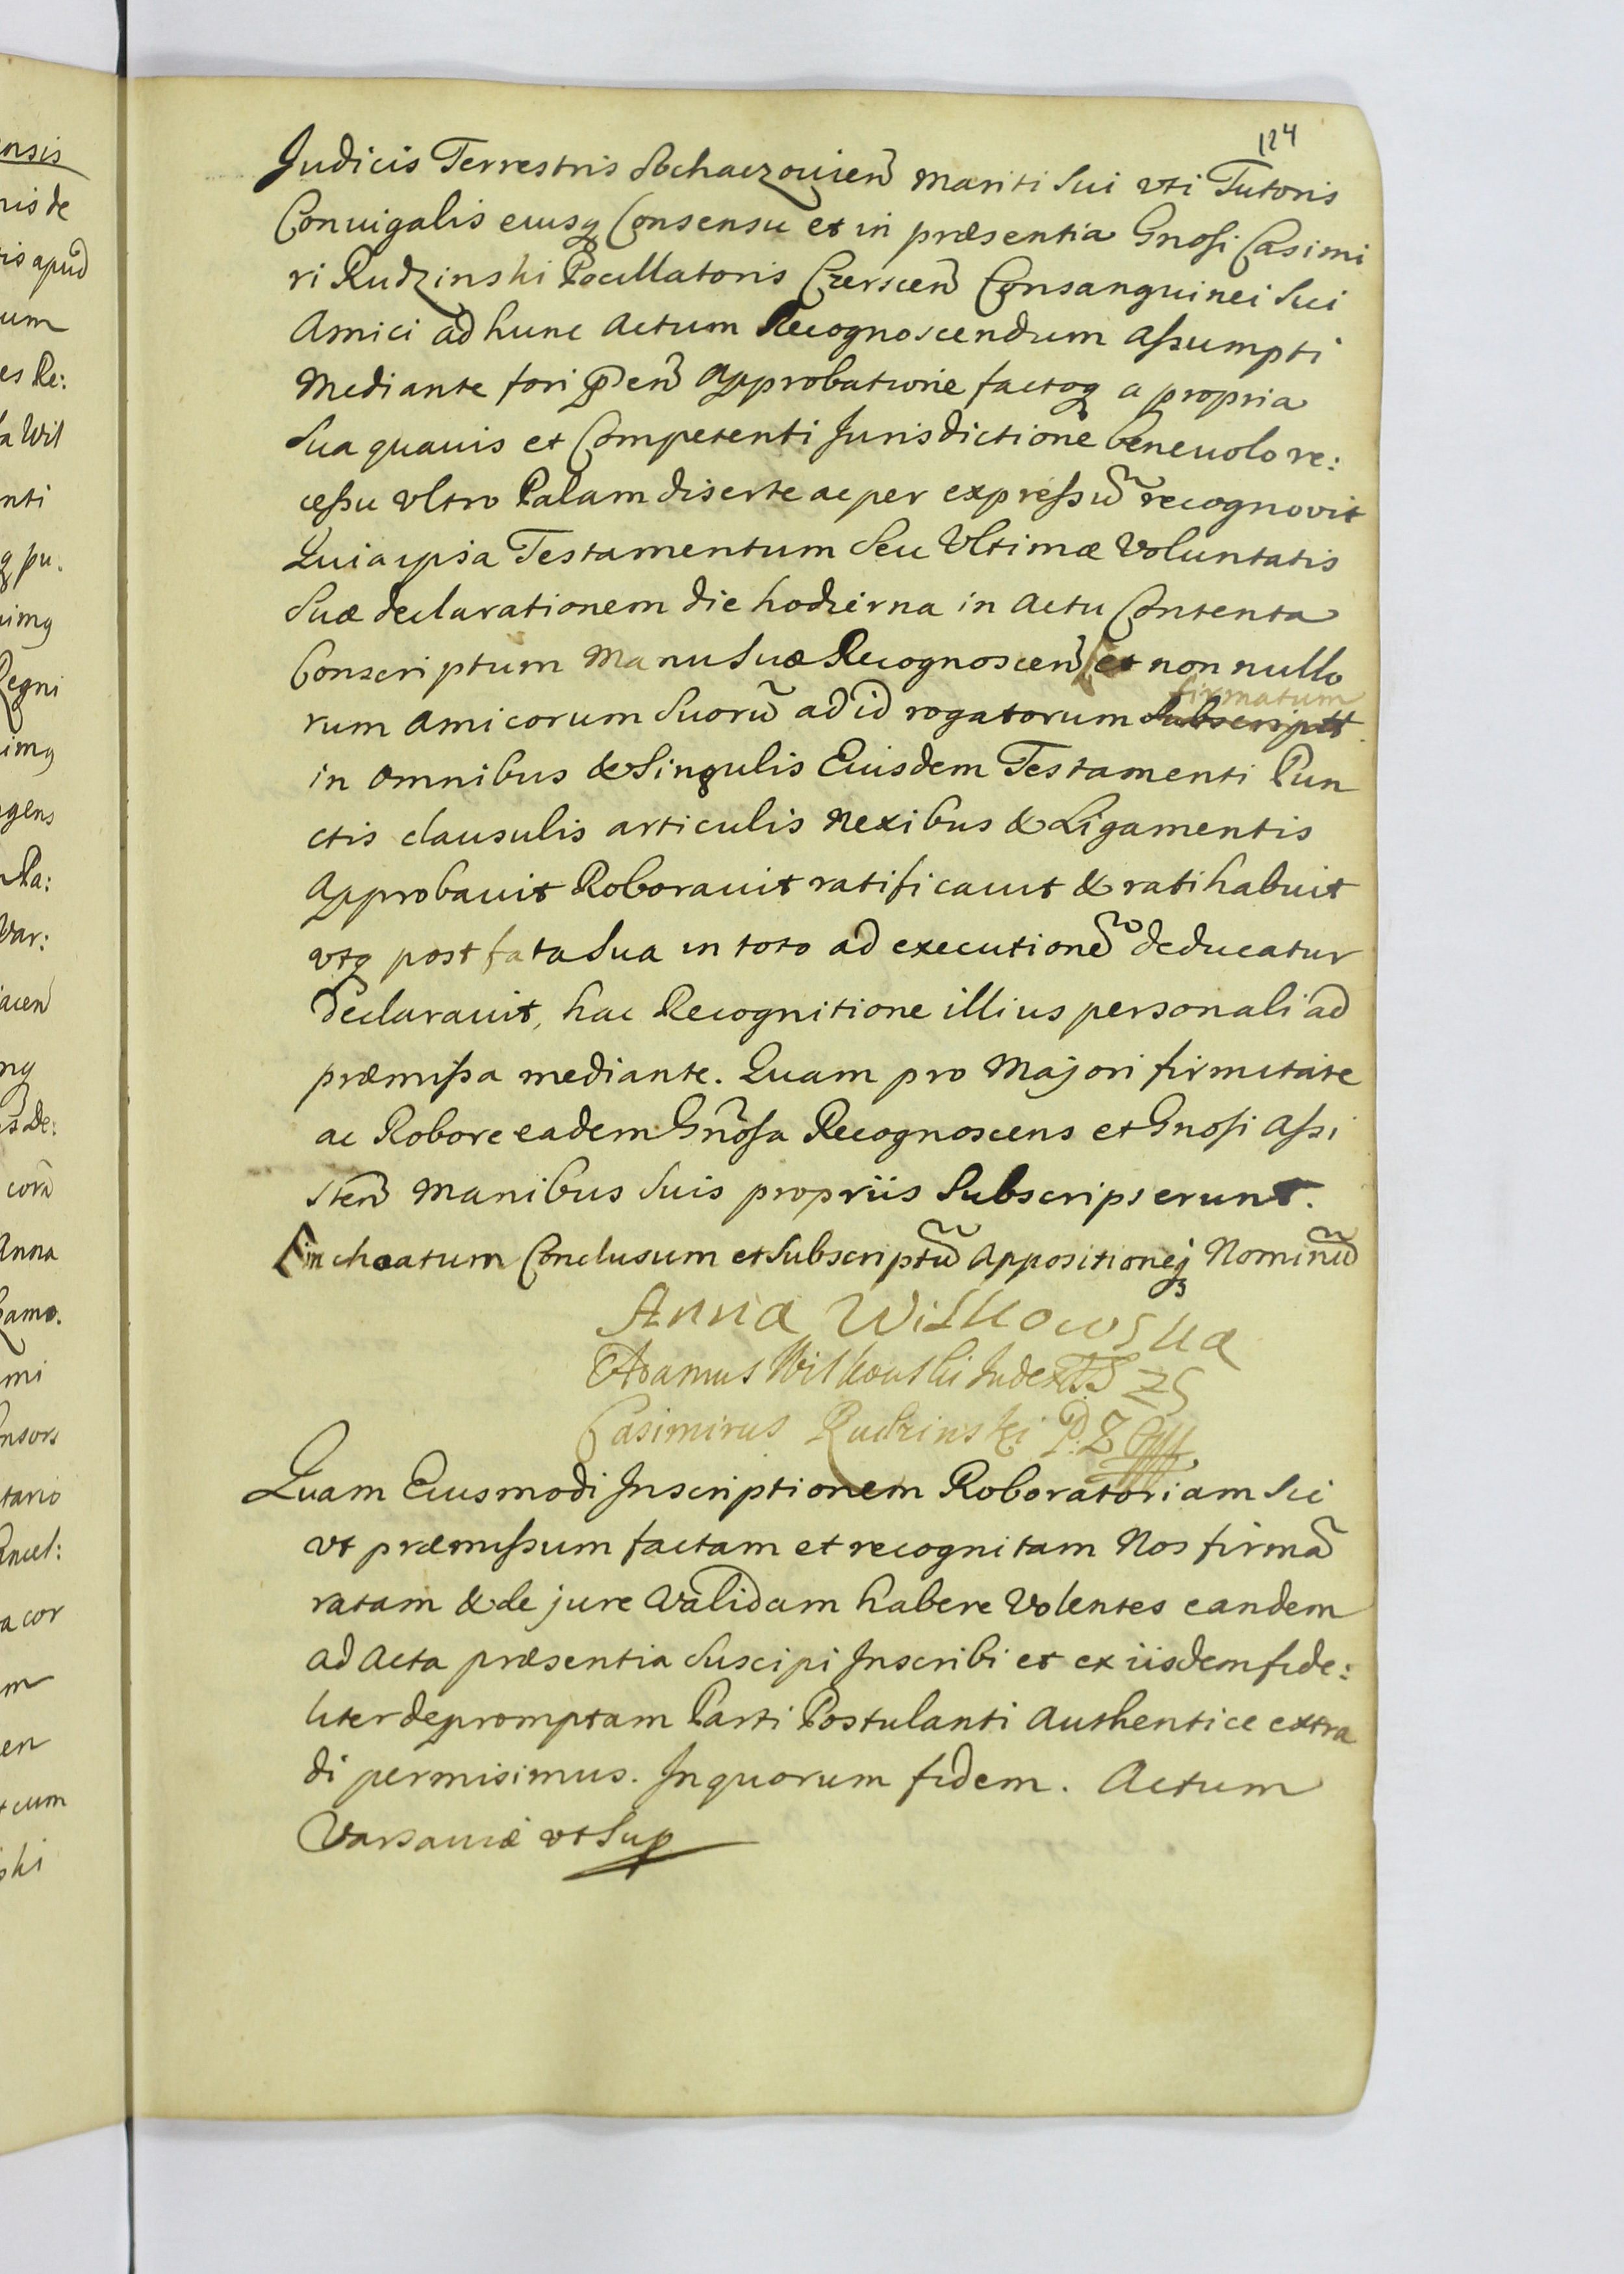 124
Judicis Terrestris Sochaczouien̄ Mariti Sui vti Tutoris
Coniugalis eiusq Consensu et in præsentia Gnosi Casimi
ri Rudzinski Pocillatoris Czerscen̄ Consanguinei Sui
Amici ad hunc Actum Recognoscendum Assumpti
Mediante fori p̄en̄ Approbatione factoq a propria
Sua quauis et Competenti Jurisdictione beneuolo re:
cessu vltro Palam diserte ac per expressū recognovit
Quia ipsa Testamentum Seu Vltimæ Voluntatis
Suæ declarationem die hodierna in Actu Contenta
Conscriptum Manu Suæ Recognoscen̄ et non nullo
rum Amicorum Suorū ad id rogatorum Subscript firmatum
in omnibus & Singulis Eiusdem Testamenti Pun
ctis clausulis articulis Nexibus & Ligamentis
Approbauit Roborauit ratificauit & ratihabuit
vtq post fata Sua in toto ad executionē deducatur
Declarauit, hac Recognitione illius personali ad
præmissa mediante. Quam pro Majori firmitate
ac Robore eadem Gnōsa Recognoscens et Gnosi Assi
sten̄ Manibus Suis propriis Subscripserunt.
inchoatum Conclusum et Subscriptū Appositioneq Nominū
Anna Wilkowska
Adamus Wilkouski Judex T.S ZS
Casimirus Rudzinski P. Z
Quam Eiusmodi Inscriptionem Roboratoriam Sic
vt præmissum factam et recognitam Nos firmā
ratam & de jure Validam habere Volentes eandem
ad Acta præsentia Suscipi Inscribi et ex iisdem fide:
liter depromptam Parti Postulanti Authentice extra
di permisimus. In quorum fidem. Actum
Varsauiæ vt Sup